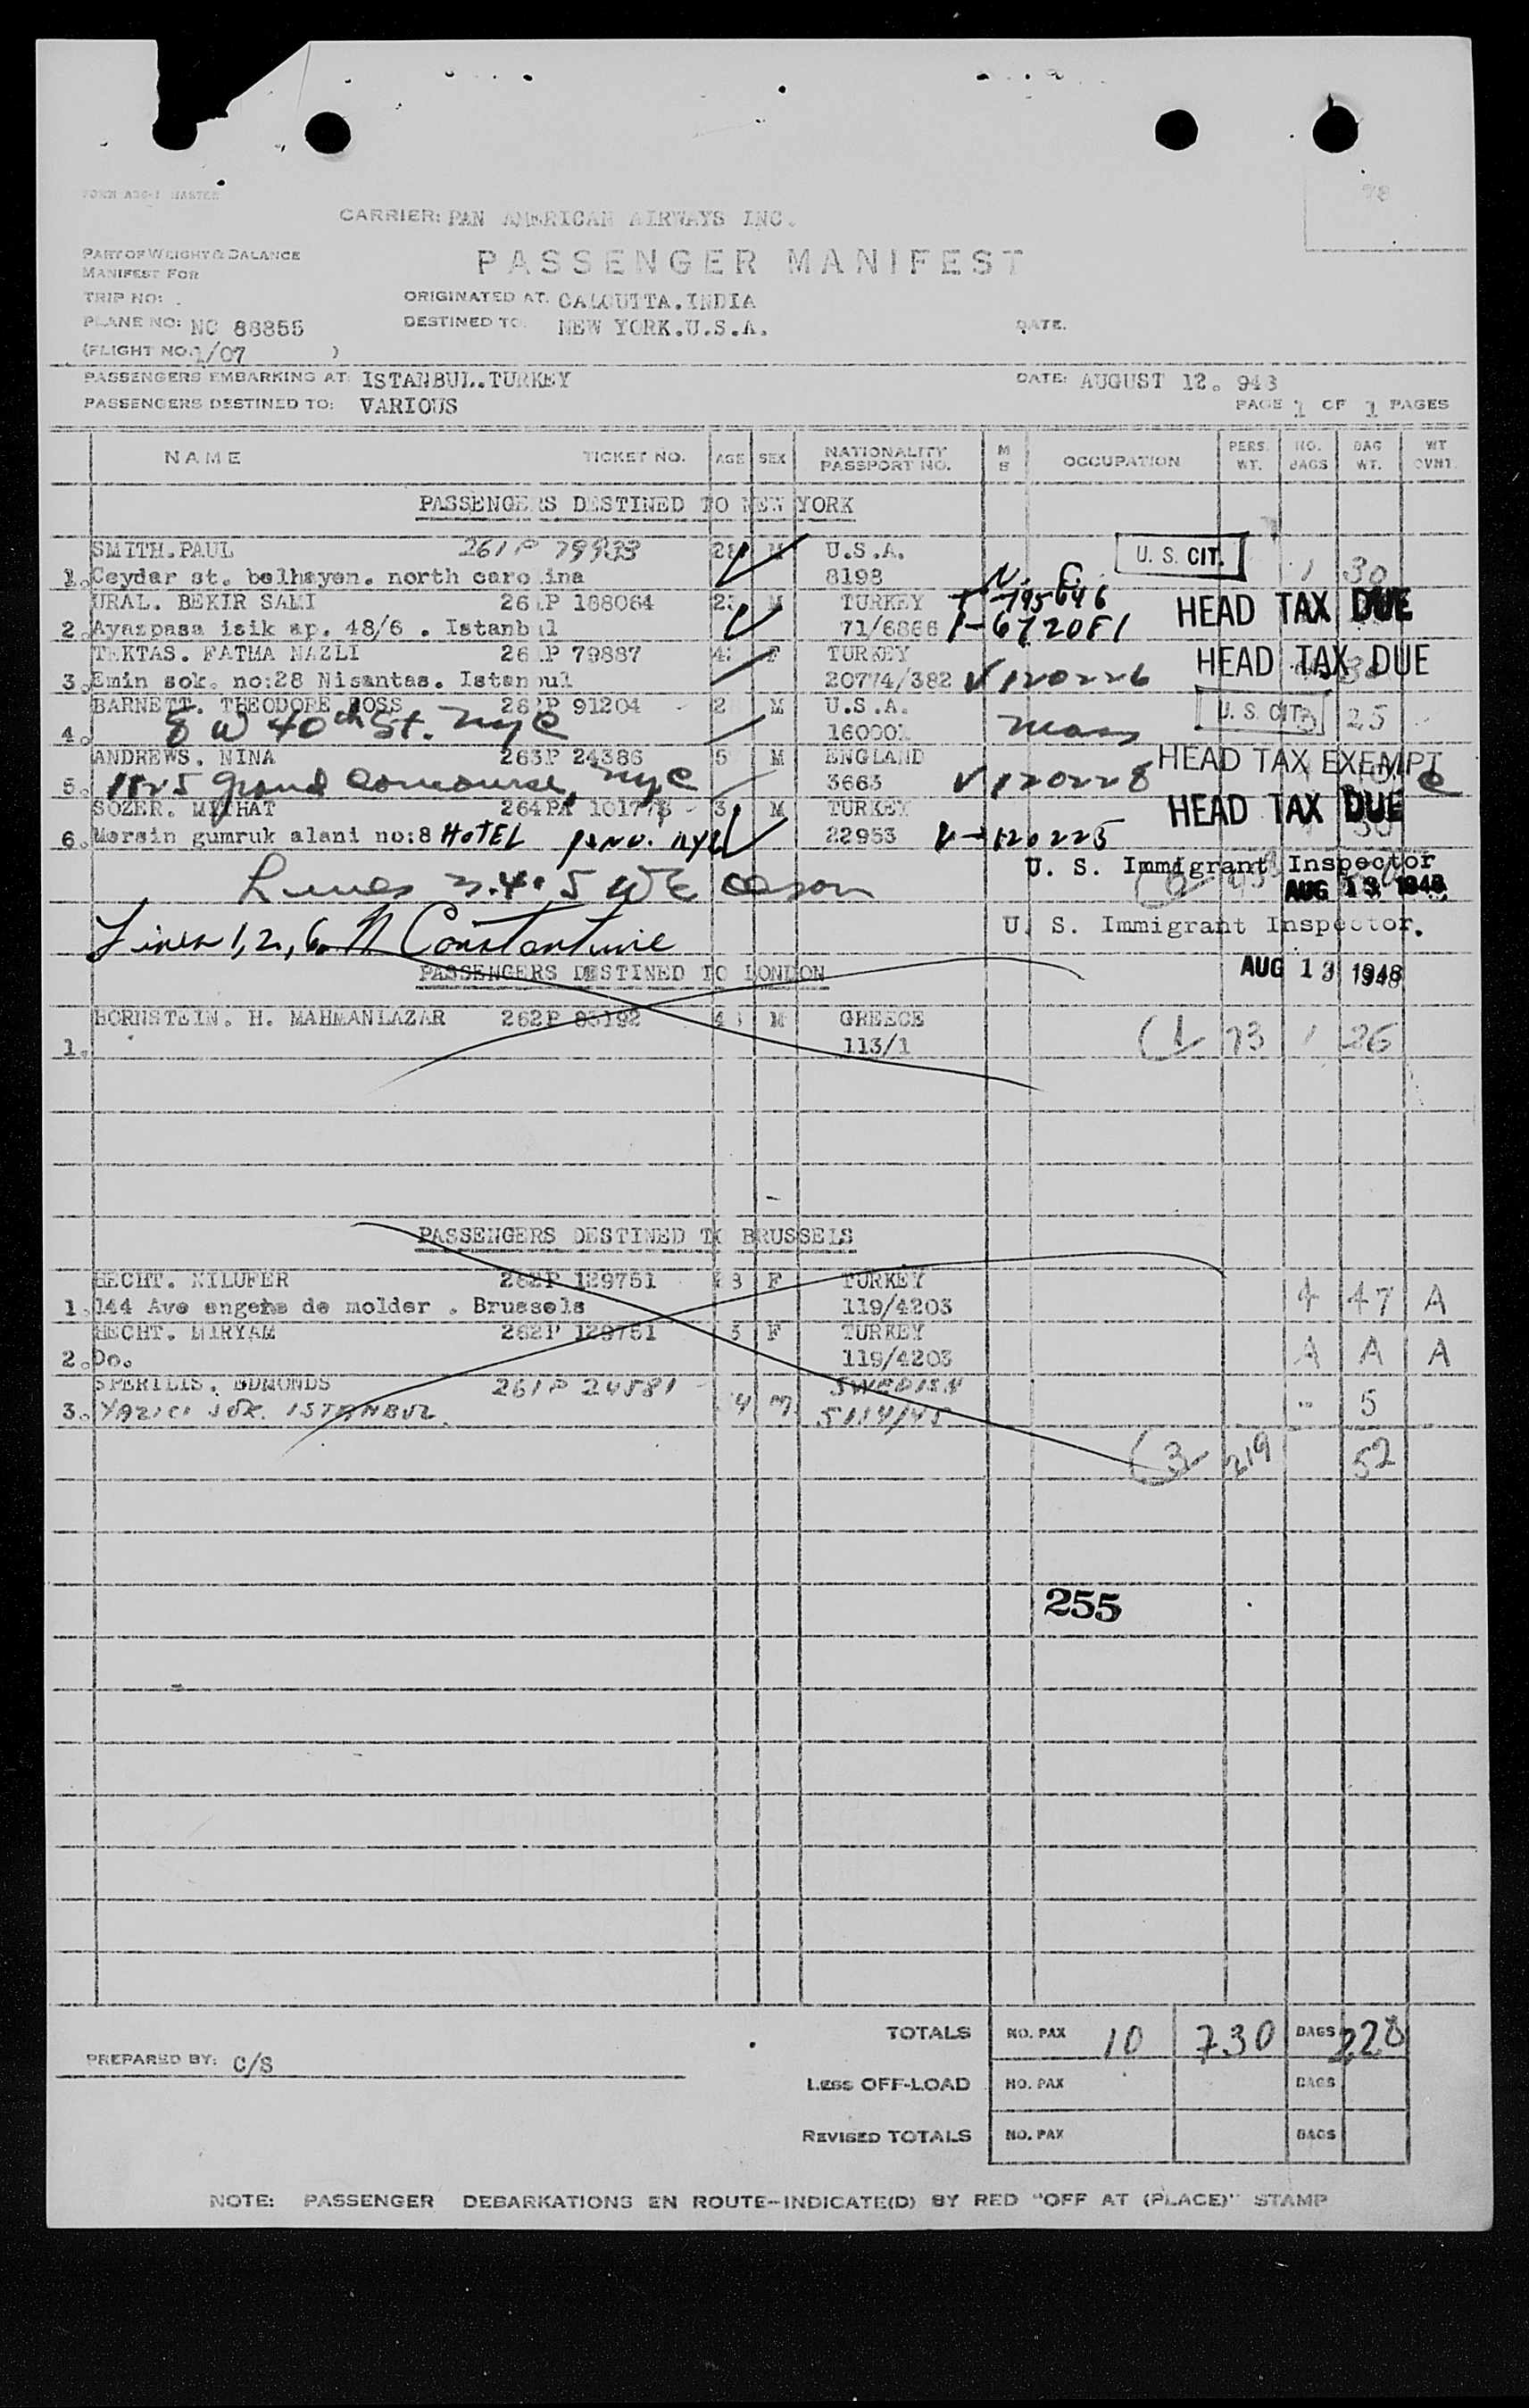 FORM A36-1 MASTER
98
CARRIER: PAN AMERICAN AIRWAYS INC.
PART OF WEIGHT & BALANCE
MANIFEST FOR
PASSENGER MANIFEST
TRIP NO:
ORIGINATED AT. CALCUTTA.INDIA
PLANE NO: NC 88855
DESTINED TO NEW YORK.U.S.A.
DATE.
(FLIGHT NO.1/07 )
PASSENGERS EMBARKING AT. ISTANBUL.TURKEY
DATE: AUGUST 12. 948
PASSENGERS DESTINED TO: VARIOUS
PAGE 1 OF 1 PAGES
NAME TICKET NO. AGE SEX NATIONALITY PASSPORT NO. M S OCCUPATION PERS. WT. NO. BAGS BAG WT. WT OVHT.
PASSENGERS DESTINED TO NEW YORK
SMITH.PAUL 261P 79933 28 M U.S.A. U. S. CIT.
1. Ceydar st. belhayen. north carolina 8198 N. C. 1 30
URAL. BEKIR SAMI 261P 188064 M TURKEY T-795646 HEAD TAX DUE
2. Ayaspasa isik ap. 48/6 . Istanbul 71/6866
TEKTAS. FATMA NAZLI 261P 79887 F TURKEY HEAD TAX DUE
3. Emin sok. no:28 Nisantas. Istanbul 20774/382 V120226
BARNETT. THEODORE ROSS 261P 91204 2 M U.S.A. U. S. CIT. 25
4. 8 W 40th St. NYC Mass
ANDREWS. NINA 263P 24386 M ENGLAND HEAD TAX EXEMPT
5. 1825 Grand Concourse, NYC 3663 V120228
SOZER. MITHAT 264PA 3 M TURKEY HEAD TAX DUE
6. Mersin gumruk alani no:8 HOTEL NYC 22953 V-120225
U. S. Immigrant Inspector
Lines 3.4.5 AUG 13 1948
Lines 1, 2, 6. N Constantine U. S. Immigrant Inspector.
PASSENGERS DESTINED TO LONDON
AUG 13 1948
BORNSTEIN. H. MAHMANLAZAR 262P 83192 4 M GREECE
1. 113/1 1 73 1 26
PASSENGERS DESTINED TO BRUSSELS
HECHT. NILUFER 262P 129751 3 F TURKEY
1. 144 Ave engene de molder . Brussels 119/4203 4 47 A
HECHT. MIRYAM 262P 129751 3 F TURKEY
2. Do. 119/4203 A A A
SPERILIS. EDMONDS 261P 24581 SWEDISH
3. YAZICI SOK. ISTANBUL. 4 M 5114/45 5
3 219 52
255
TOTALS NO. PAX 10 730 BAGS 228
PREPARED BY: C/S
LESS OFF-LOAD NO. PAX BAGS
REVISED TOTALS NO. PAX BAGS
NOTE: PASSENGER DEBARKATIONS EN ROUTE-INDICATE(D) BY RED "OFF AT (PLACE)" STAMP